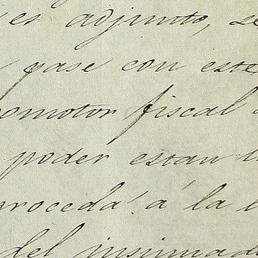 es adjunto, se
gase con este
omotor fiscal
poder estan
proceda á la
del insinuad